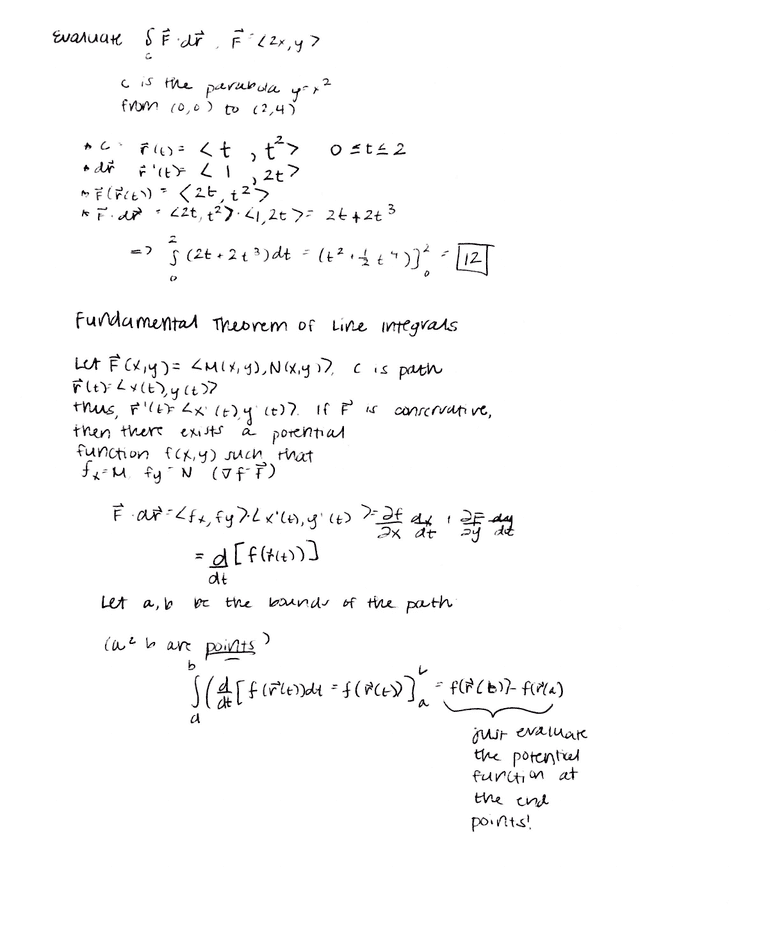 Evaluate ∫ F⃗ · dr⃗ , F⃗ = <2x, y>
c
c is the parabola y=x²
from (0,0) to (2,4)
* C: r⃗(t) = <t , t²> 0 ≤ t ≤ 2
* dr⃗ r⃗'(t) = <1 , 2t>
* F⃗(r⃗(t)) = <2t, t²>
* F⃗ · dr⃗ = <2t, t²> · <1, 2t> = 2t + 2t³
=> ∫₀² (2t + 2t³) dt = (t² + ½ t⁴)]₀² = 12
Fundamental Theorem of Line Integrals
Let F⃗(x,y) = <M(x,y), N(x,y)>, C is path
r⃗(t) = <x(t), y(t)>
thus, r⃗'(t) = <x'(t), y'(t)>. If F⃗ is conservative,
then there exists a potential
function f(x,y) such that
fx = M, fy = N (∇f = F⃗)
F⃗ · dr⃗ = <fx, fy> · <x'(t), y'(t)> = ∂f/∂x dx/dt + ∂F/∂y dy/dt
= d/dt [f(r⃗(t))]
Let a, b be the bounds of the path
(a & b are points)
∫ₐᵇ (d/dt [f(r⃗(t)) dt = f(r⃗(t))]ₐᵇ = f(r⃗(b)) - f(r⃗(a)
just evaluate
the potential
function at
the end
points!